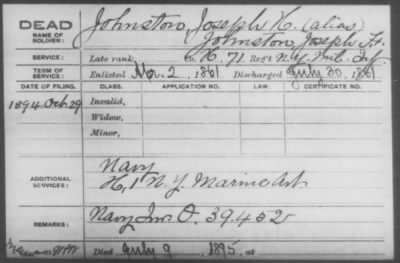 DEAD
NAME OF SOLDIER:
Johnston, Joseph K. (alias)
Johnston, Joseph H.
SERVICE: Late rank, Co. K. 71 Reg't N.Y. Mil. Inf.
TERM OF SERVICE: Enlisted 2, 1861 Discharged July 30, 1861
DATE OF FILING. CLASS. APPLICATION NO. LAW. CERTIFICATE NO.
1894 Oct. 29 Invalid,
Widow,
Minor,
ADDITIONAL SERVICES: Navy
H, 1 N.Y. Marine Art.
REMARKS: Navy Inv. O. 39.452
Died July 9, 1895, at